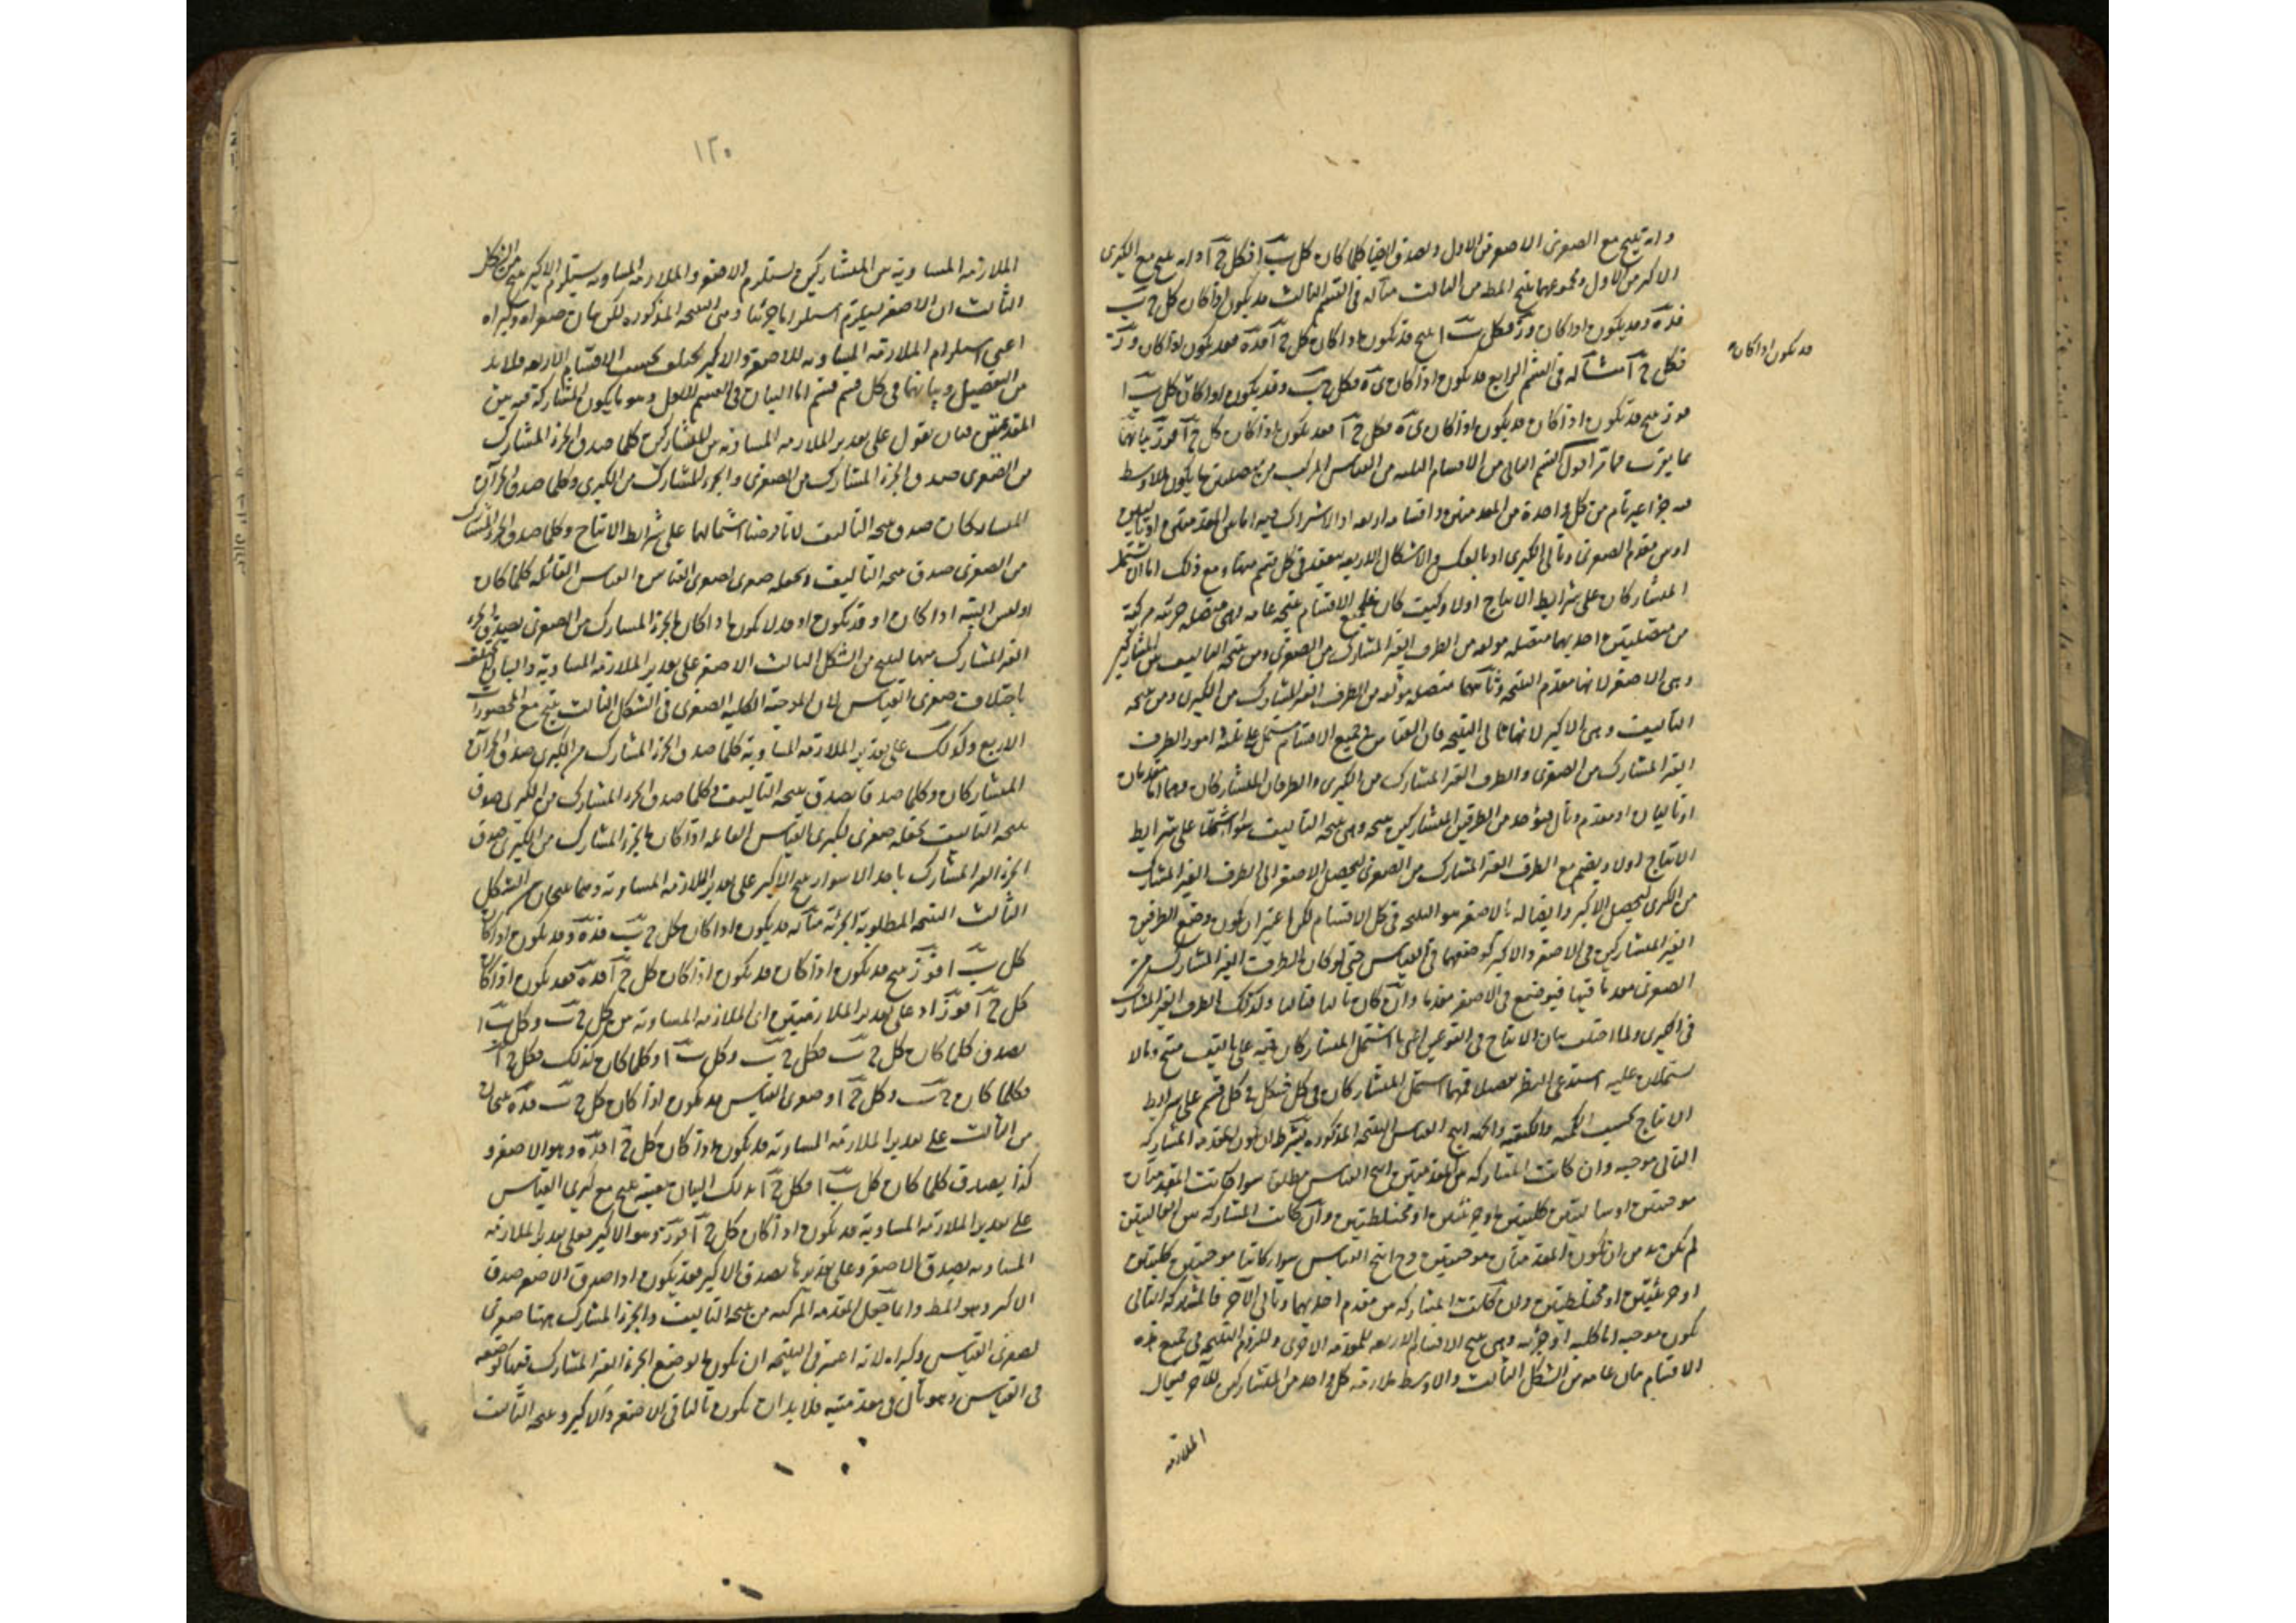 وانه ينتج مع الصغرى الاصغر من الاول ويصدق ايضا كلما كان كل ب ا فكل ج ا وانه ينتج مع الكبرى
الاكبر من الاول ومجموعهما ينتج المط من الثالث مثاله فى القسم الثالث قد يكون اذا كان كل ج ب
فده وقد يكون اذا كان وز فكل ب ا ينتج قد يكون اذا كان كل ج ا فده فقد يكون اذا كان وز
قد يكون اذا كان
فكل ج ا مثاله فى القسم الرابع قد يكون اذا كان ى ه فكل ج ب وقد يكون اذا كان كل ب ا
فوز ينتج قد يكون اذا كان قد يكون اذا كان ى ه فكل ج ا فقد يكون اذا كان كل ج ا فوز بيانهما
مما يترب مما مر اقول القسم الثانى من الاقسام الثلثه من القياس المركب من متصلتين ما يكون الاوسط
فيه جزءا غير تام من كل واحدة من المقدمتين واقسامه اربعه اذ الاشتراك فيه اما بين المقدمتين او تاليين
او بين مقدم الصغرى وتالى الكبرى او بالعكس والاشكال الاربعه منعقد فى كل قسم منها ومع ذلك اما ان يشتمل
المتشاركان على شرايط الانتاج اولا وكيف كان فلجميع الاقسام نتيجة عامه فهى متصله جزئيه مركبة
من متصلتين احديهما متصله مولفه من الطرف الغير المشارك من الصغرى ومن نتيجة التاليف بين المتشاركين
وهى الاصغر لانها مقدم النتيجه وثانيهما متصله مولفه من الطرف الغير المشارك من الكبرى ومن نتيجه
التاليف وهى الاكبر لانها تالى النتيجه فان القياس فى جميع الاقسام يشتمل على ثلثه امور الطرف
الغير المشارك من الصغرى والطرف الغير المشارك من الكبرى والطرفان المتشاركان وهما اما مقدمان
او تاليان او مقدم وتال فيؤخذ من الطرفين المتشاركين نتيجه وهى نتيجه التاليف سواء اشتملا على شرايط
الانتاج اولا ويضم مع الطرف الغير المشارك من الصغرى ليحصل الاصغر والى الطرف الغير المشارك
من الكبرى ليحصل الاكبر واتصاله بالاصغر هو النتيجه فى كل الاقسام لكن اعتبر ان يكون وضع الطرفين
الغير المتشاركين فى الاصغر والاكبر كوضعهما فى القياس حتى لو كان الطرف الغير المشارك من
الصغرى مقدما فيها فيوضع فى الاصغر مقدما وان كان تاليا فتاليا وكذلك الطرف الغير المشارك
فى الكبرى ولما اختلف بيان الانتاج فى النوعين اى ما اشتمل المتشاركان فيه على تاليف منتج وما لا
يشتملان عليه استدعى النظر تفصيلا فمهما اشتمل المتشاركان فى كل شكل فى كل قسم على شرايط
الانتاج بحسب الكميه والكيفيه والجهه انتج القياس النتيجه المذكوره بشرط ان يكون المقدمه المشاركه
التالى موجبه وان كانت المشاركه بين المقدمتين انتج القياس مطلقا سواء كانت المقدمتان
موجبتين او سالبتين كليتين او جزئيتين او مختلطتين وان كانت المشاركه بين التاليين
لم يكن بد من ان يكون المقدمتان موجبتين وح انتج القياس سواء كانتا موجبتين كليتين
او جزئيتين او مختلطتين وان كانت المشاركه بين مقدم احديهما وتالى الآخر فالمشاركه التالى
يكون موجبه اما كليه او جزئيه وهى ينتج الاقسام الاربعه للمقدمه الاخرى وللزوم النتيجه فى جميع هذه
الاقسام بيان عامه من الشكل الثالث والاوسط ملازمه كل واحد من المتشاركين للآخر فيقال
الملازمه
١٢٠
الملازمه المساويه بين المتشاركين يستلزم الاصغر والملازمه المساويه يستلزم الاكبر ينتج من الشكل
الثالث ان الاصغر يستلزم استلزاما جزئيا وهى النتيجه المذكوره لكن بيان صغراه وكبراه
اعنى استلزام الملازمه المساويه للاصغر والاكبر يختلف بحسب الاقسام الاربعه فلا بد
من التفصيل وبيانهما فى كل قسم قسم اما البيان فى القسم الاول وهو ما يكون المشاركة فيه بين
المقدمتين فبان يقول على تقدير الملازمه المساويه بين المتشاركين كلما صدق الجزء المشارك
من الصغرى صدق الجزء المشارك من الصغرى والجزء المشارك من الكبرى وكلما صدق الجزآن
المشاركان صدق نتيجه التاليف لانا فرضنا اشتمالهما على شرايط الانتاج وكلما صدق الجزء المشارك
من الصغرى صدق نتيجه التاليف ونجعله صغرى لصغرى القياس القائله كلما كان
او ليس البته اذا كان او قد يكون او قد لا يكون اذا كان الجزء المشارك من الصغرى يصدق الجزء
الغير المشارك منها لينتج من الشكل الثالث الاصغر على تقدير الملازمه المساويه والبيان لا يختلف
باختلاف صغرى القياس لان الموجبه الكليه الصغرى فى الشكل الثالث ينتج مع المحصورات
الاربع وكذلك على تقدير الملازمه المساويه كلما صدق الجزء المشارك من الكبرى صدق الجزآن
المتشاركان وكلما صدقا يصدق نتيجه التاليف فكلما صدق الجزء المشارك من الكبرى صدق
نتيجه التاليف نجعله صغرى لكبرى القياس القائله اذا كان الجزء المشارك من الكبرى صدق
الجزء الغير المشارك باحد الاسوار ينتج الاكبر على تقدير الملازمه المساويه وهما ينتجان من الشكل
الثالث النتيجه المطلوبه الجزئه مثاله قد يكون اذا كان كل ج ب فده وقد يكون اذا كان
كل ب ا فوز ينتج قد يكون اذا كان قد يكون اذا كان كل ج ا فده فقد يكون اذا كان
كل ج ا فوز اذ على تقدير الملازمتين اى الملازمه المساويه بين كل ج ب وكل ب ا
يصدق كلما كان كل ج ب فكل ج ب وكل ب ا وكلما كان كذلك فكل ج ا
فكلما كان ج ب وكل ج ا وصغرى القياس قد يكون اذا كان كل ج ب فده ينتجان
من الثالث على تقدير الملازمه المساويه قد يكون اذا كان كل ج ا فده وهو الاصغر و
كذا يصدق كلما كان كل ب ا فكل ج ا بذلك البيان بعينه ينتج مع كبرى القياس
على تقدير الملازمه المساويه قد يكون اذا كان كل ج ا فوز وهو الاكبر فعلى تقدير الملازمه
المساويه يصدق الاصغر وعلى تقديرها يصدق الاكبر فقد يكون اذا صدق الاصغر صدق
الاكبر وهو المط وانما جعل المقدمه المركبه من نتيجه التاليف والجزء المشارك ههنا صغرى
لصغرى القياس وكبراه لانه اعتبر فى النتيجه ان يكون وضع الجزء الغير المشارك فيها كوضعه
فى القياس وهو تال فى مقدمتيه فلا بد ان يكون تاليا فى الاصغر والاكبر ونتيجه الثالث